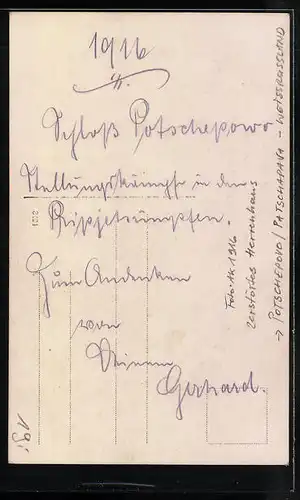 1916
Schloß Potschepowo
Stellungskämpfe in den
Pripjetsümpfen.
Zum Andenken
von
Deinem
Gerhard.
Foto-AK 1916
zerstörtes Herrenhaus
→ POTSCHEPOVO / PATSCHAPAVA - WEISSRUSSLAND